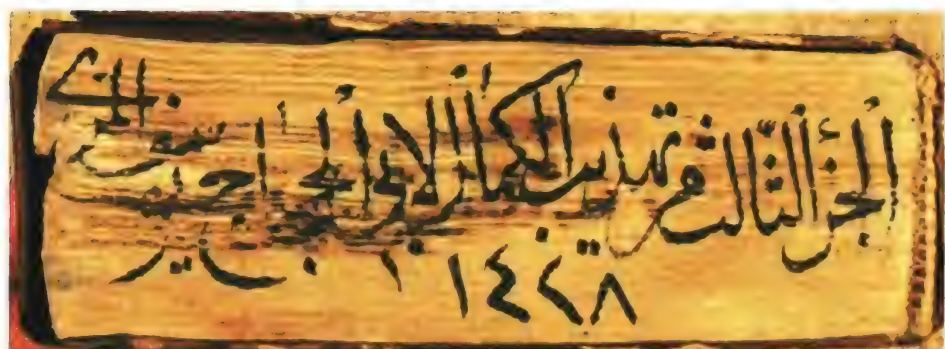 الجزء الثالث من تهذيب الكمال لابي الحجاج يوسف المزي
١٤٢٨